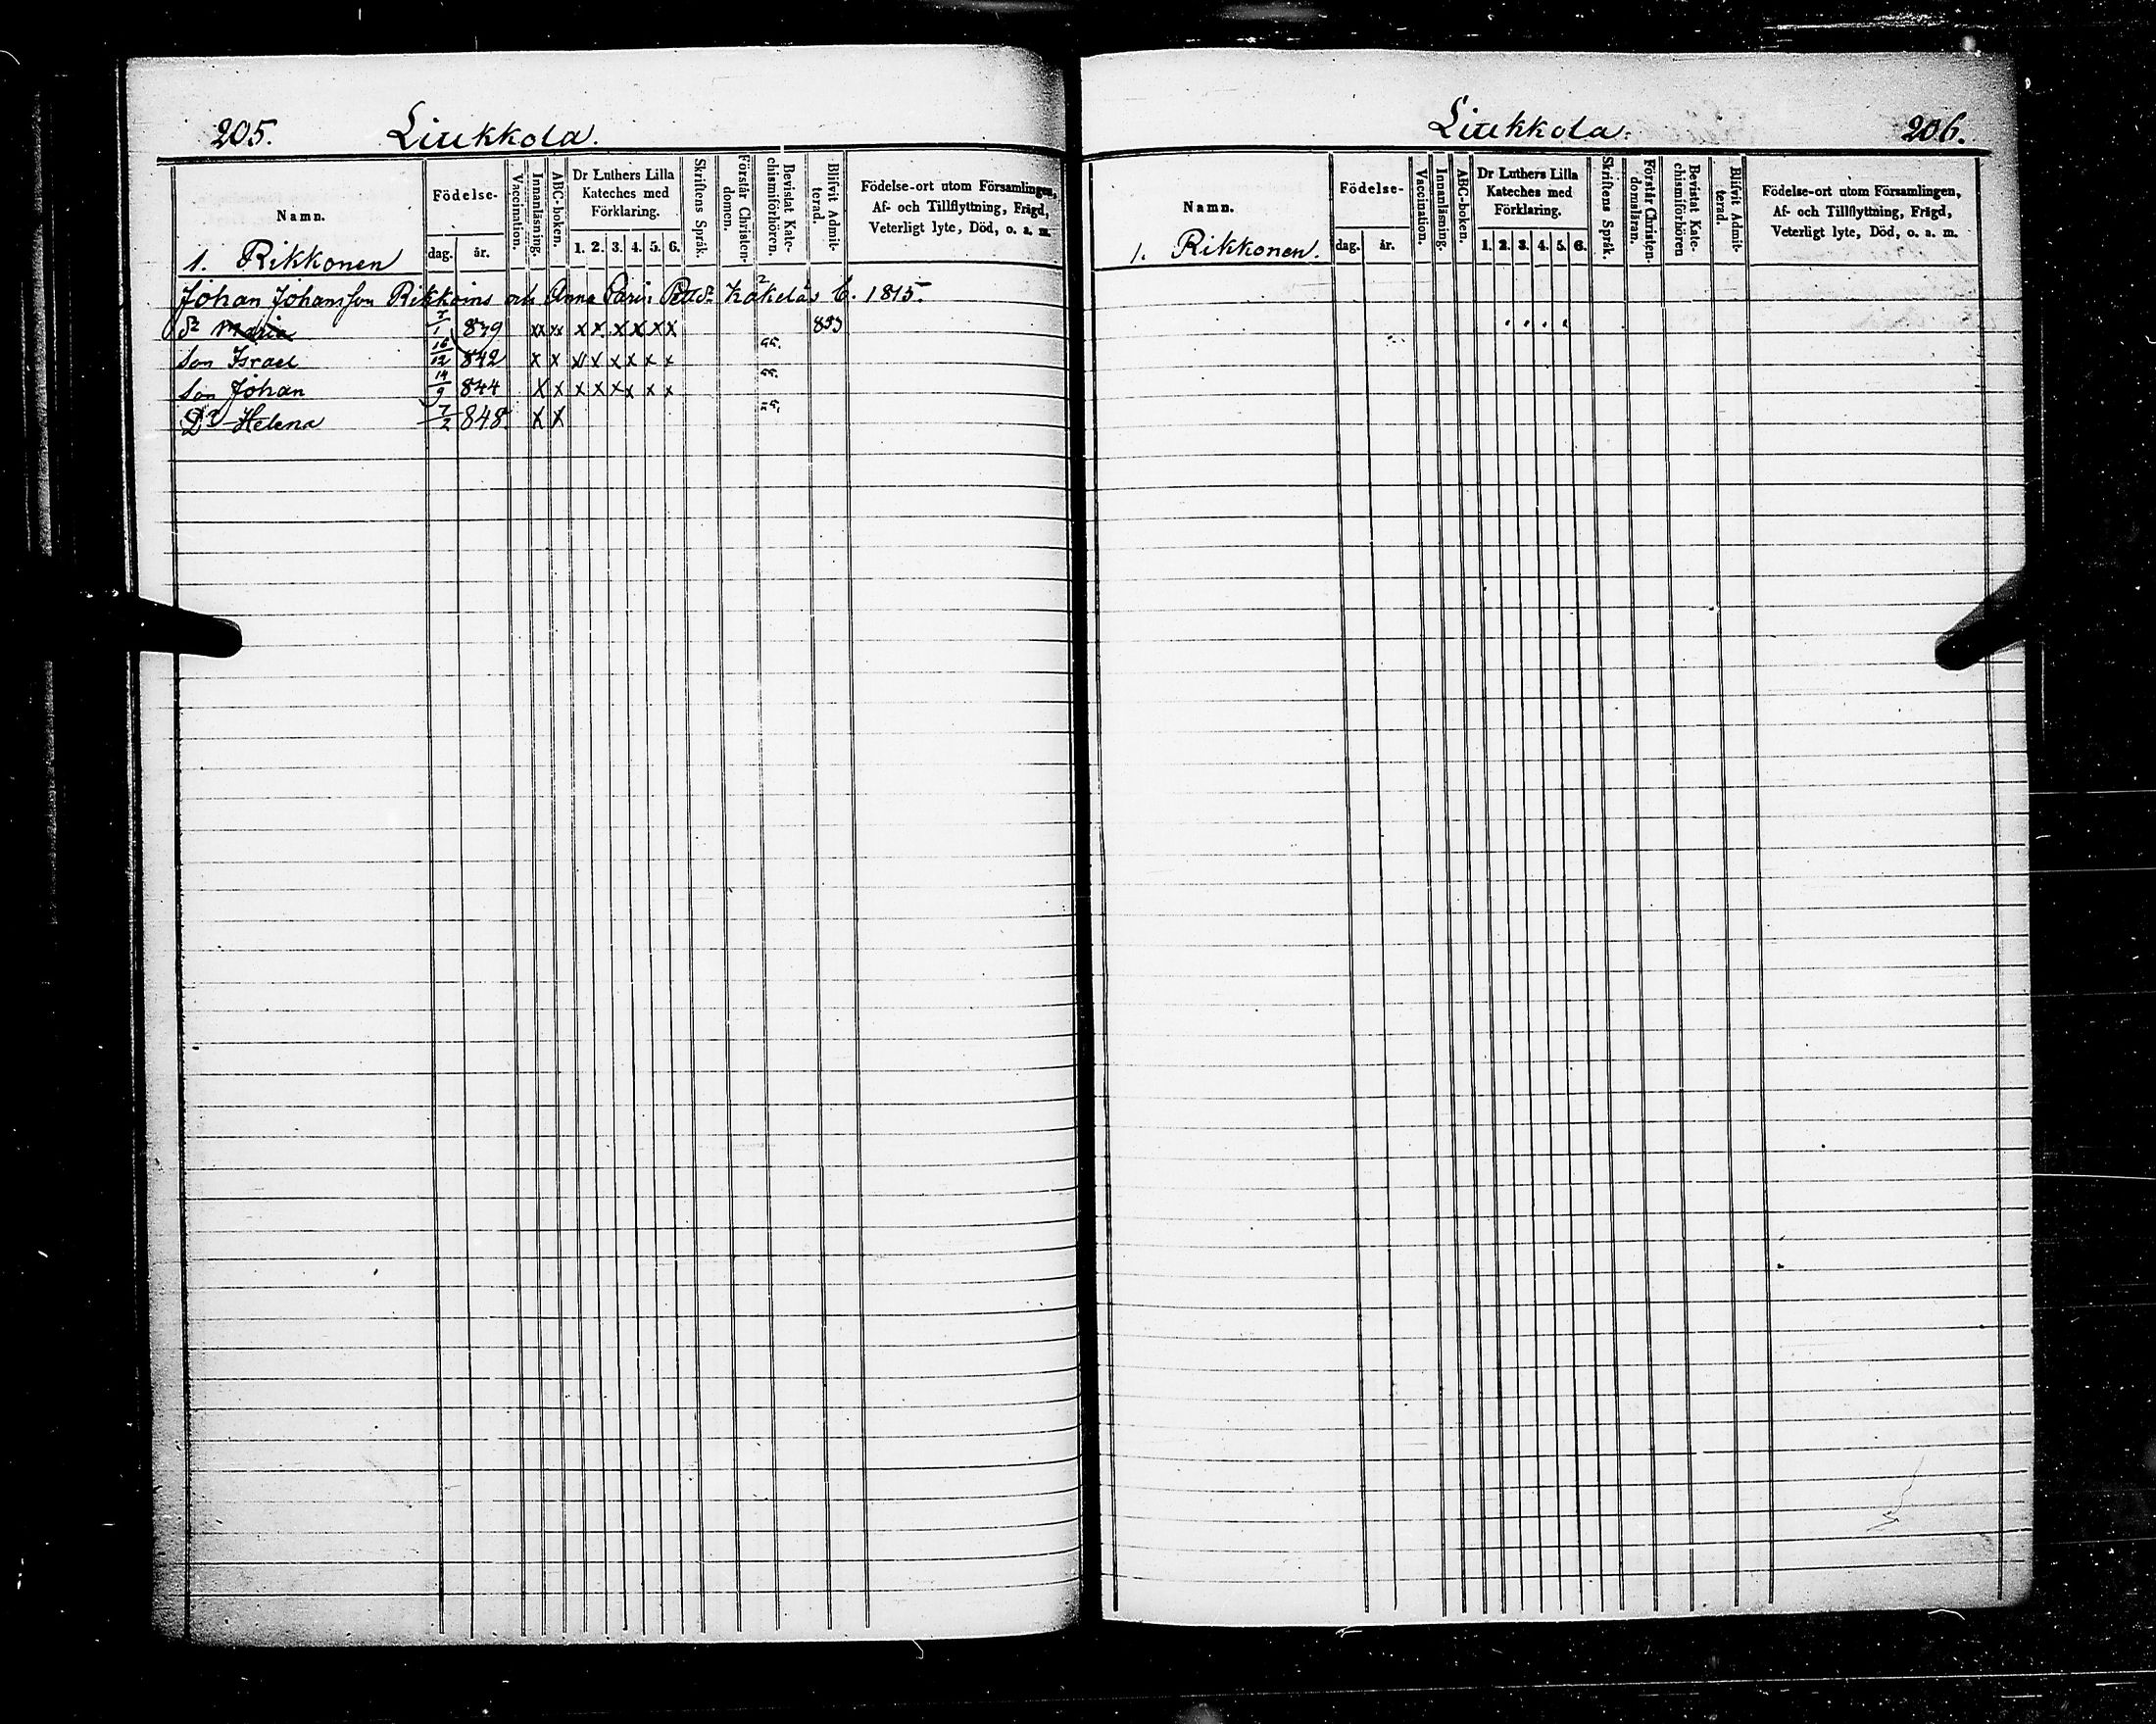 205. Liukkola.
Namn.
Födelse-
dag. år.
Vaccination.
Innanläsning.
ABC-boken.
Dr Luthers Lilla
Kateches med
Förklaring.
1. 2. 3. 4. 5. 6.
Skriftens Språk.
Förstår Christen-
domen.
Bevistat Kate-
chismiförhören.
Blifvit Admit-
terad.
Födelse-ort utom Församlingen,
Af- och Tillflyttning, Frägd,
Veterligt lyte, Död, o. a. m.
1. Rikkonen
Johan Johansson Rikkoins och Anna Carin 1815.
Maria 839 xx xx x x x x x x 853
16/12
Son Israel 842 x x x x x x x x 55.
14/9
Son Johan 844 x x x x x x x x 55.
Dr Helena 7/2 848 x x
Liukkola. 206.
Namn.
Födelse-
dag. år.
Vaccination.
Innanläsning.
ABC-boken.
Dr Luthers Lilla
Kateches med
Förklaring.
1. 2. 3. 4. 5. 6.
Skriftens Språk.
Förstår Christen-
domsläran.
Bevistat Kate-
chismiförhören
Blifvit Admit-
terad.
Födelse-ort utom Församlingen,
Af- och Tillflyttning, Frägd,
Veterligt lyte, Död, o. a. m.
1. Rikkonen.